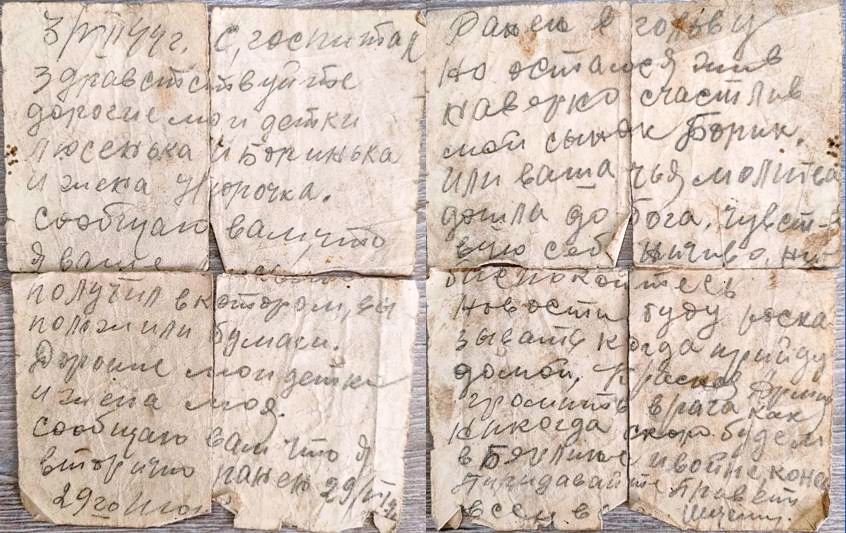 3/VII 44 г. С, госпитал
Здравстствуйте
дорогие мои детки
Люсенька и Боринька
и жена Нюрочка.
сообщаю вам, что
я ваше
получил в котором, вы
положили бумаги.
Дорогие мои детки
и жена моя.
сообщаю вам что я
вторично ранен 29/VI 44
29 го Июн
Ранен в голову
но остался жив
наверно счастлив
мой сынок Борик.
или ваша чья молитва
дошла до бога. чувст-
вую себе ничиво, ни
биспокойтесь
Новости буду роска
зывать когда прийду
домой, Красная Армия
громить врага как
никогда скоро будем
в Берлине и войне конец
Пиридавайте Привет
всем